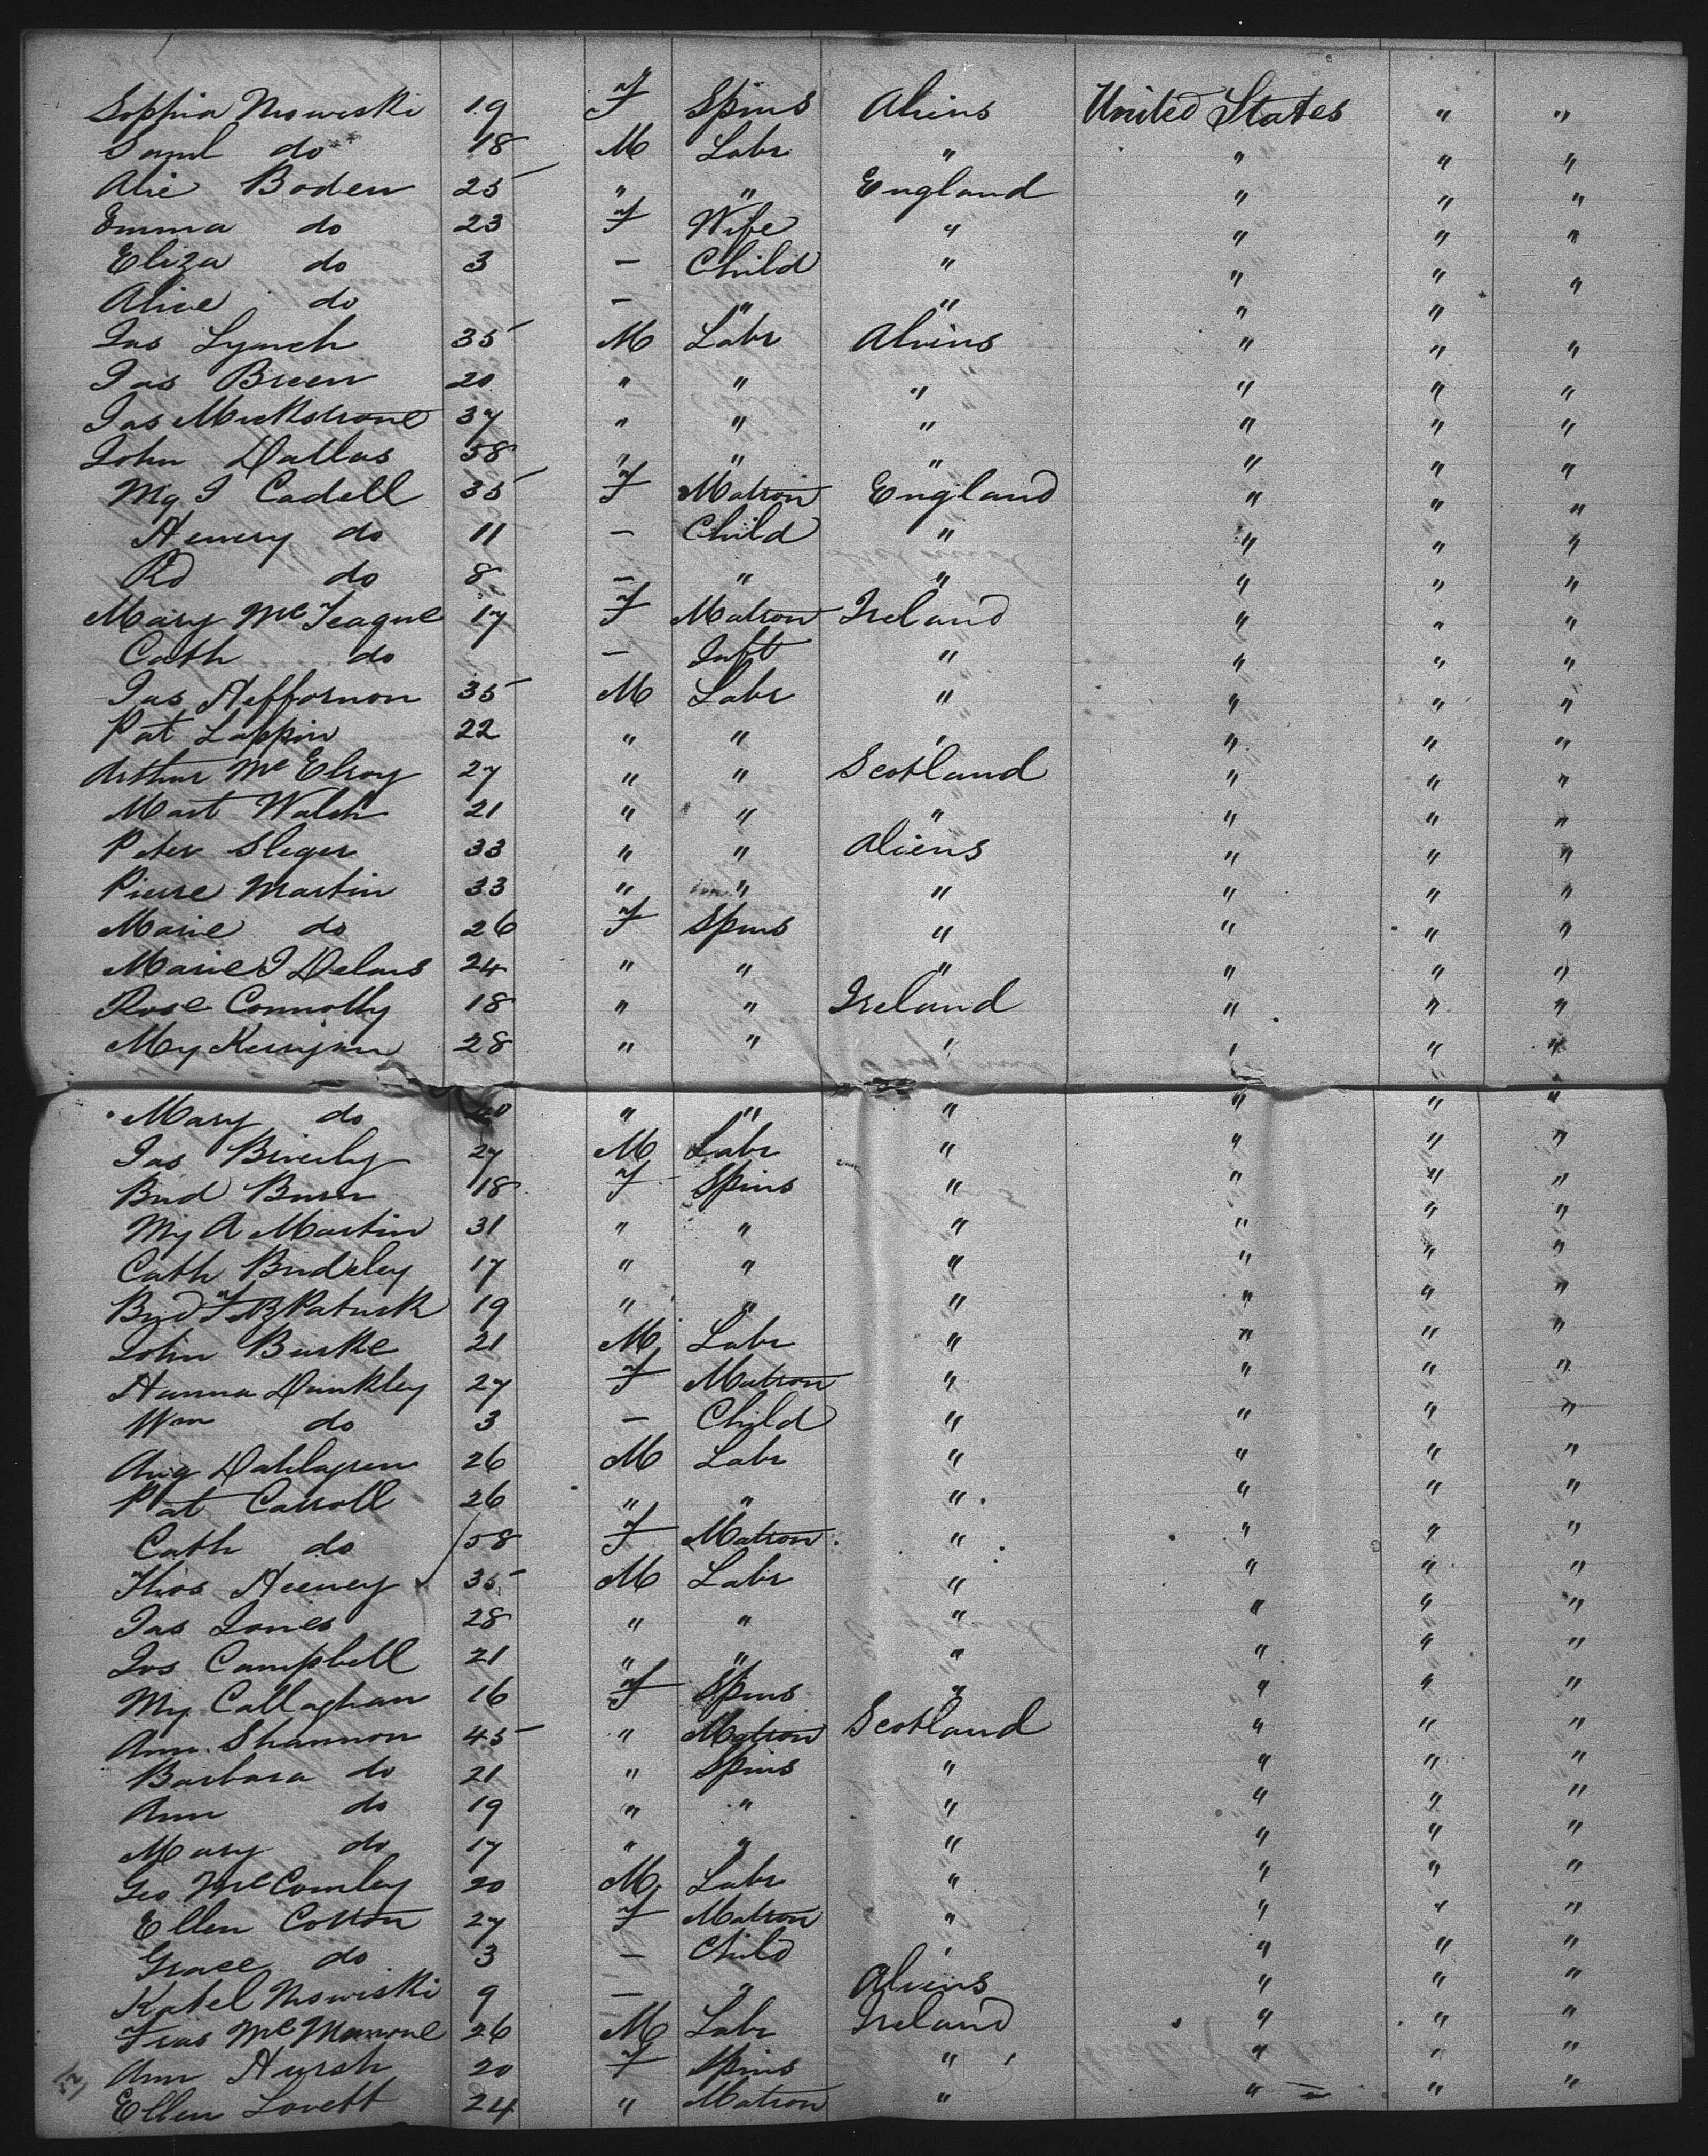 Sophia Nowiski 19 F Spins Aliens United States " "
Saml do 18 M Labr " " " "
Alie Boden 25 " " England " " "
Emma do 23 F Wife " " " "
Eliza do 3 — Child " " " "
Alice do — " " " "
Jas Lynch 35 M Labr Aliens " " "
Jas Breen 20 " " " " " "
Jas 37 " " " " " "
John Dallas 58 " " " " " "
Mg J Cadell 35 F Matron England " " "
Henery do 11 — Child " " " "
Rd do 8 — " " " " "
Mary McTeague 17 F Matron Ireland " " "
Cath do — Inft " " " "
Jas Heffornon 35 M Labr " " " "
Pat Lappin 22 " " " " " "
Arthur McElroy 27 " " Scotland " " "
Mart Walsh 21 " " " " " "
Peter Sleger 33 " " Aliens " " "
Pierre Martin 33 " " " " " "
Marie do 26 F Spins " " " "
Marie J 24 " " " " " "
Rose Connolly 18 " " Ireland " " "
My Kerrigan 28 " " " " " "
Mary do 20 " " " " " "
Jas 27 M Labr " " " "
Brid 18 F Spins " " " "
My A Martin 31 " " " " " "
Cath 17 " " " " " "
Brid 19 " " " " " "
John Burke 21 M Labr " " " "
Hanna Dunkley 27 F Matron " " " "
Wm do 3 — Child " " " "
Aug Dahlgren 26 M Labr " " " "
Pat Carroll 26 " " " " " "
Cath do 58 F Matron " " " "
Thos Heeney 35 M Labr " " " "
Jas Jones 28 " " " " " "
Jos Campbell 21 " " " " " "
My Callaghan 16 F Spins " " " "
Ann Shannon 45 " Matron Scotland " " "
Barbara do 21 " Spins " " " "
Ann do 19 " " " " " "
Mary do 17 " " " " " "
Geo McComley 20 M Labr " " " "
Ellen Cotton 27 F Matron " " " "
Grace do 3 — Child " " " "
Katel Nowiski 9 — " Aliens " " "
Fras 26 M Labr Ireland " " "
Ann Hursh 20 F Spins " " " "
Ellen Lovett 24 " Matron " " " "